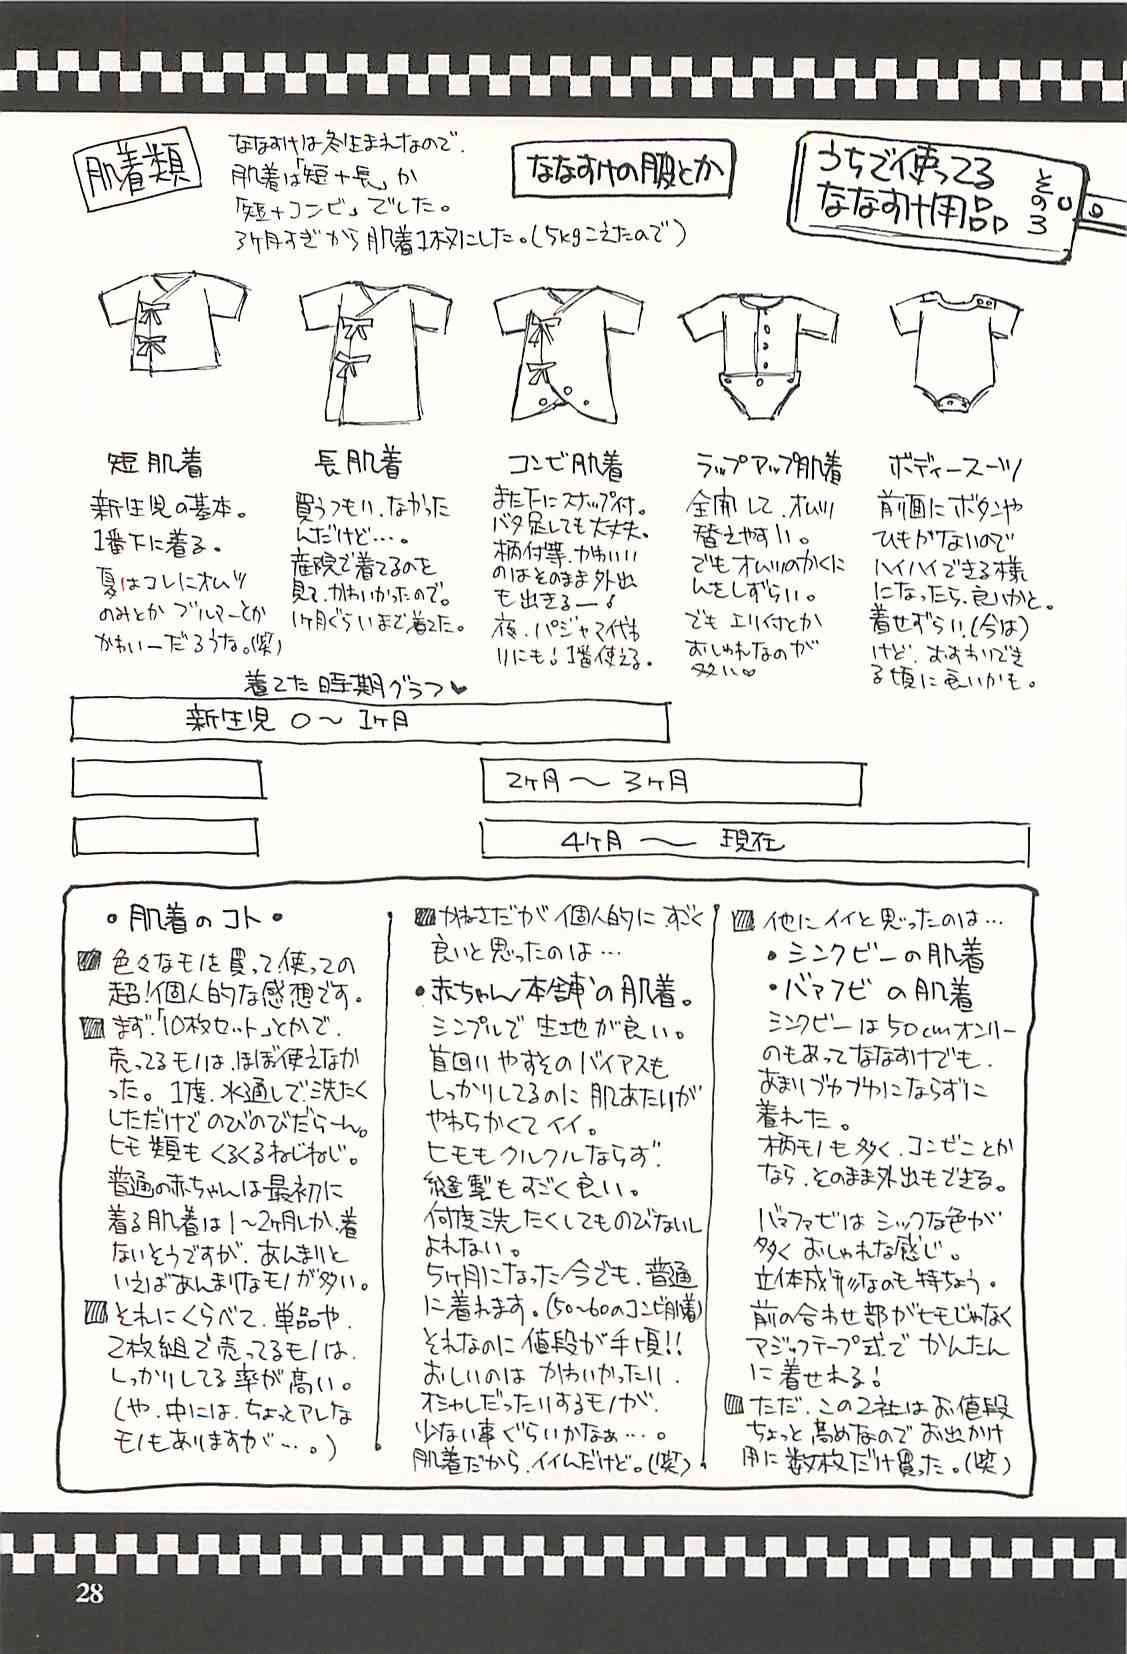 うちで使ってる
ななすけ用品
その3
ななすけの服とか
肌着類
ななすけは冬生まれなので、
肌着は「短+長」か
「短+コンビ」でした。
3ヶ月すぎから肌着1枚にした。(5kgこえたので)
短肌着
新生児の基本。
1番下に着る。
夏はコレにオムツ
のみとかブルマーとか
かわいーだろうな。(笑)
長肌着
買うつもり、なかった
んだけど…。
産院で着てるのを
見て、かわいかったので。
1ヶ月ぐらいまで着てた。
コンビ肌着
また下にスナップ付。
バタ足しても大丈夫。
柄付等、かわいい
のはそのまま外出
も出きるー!
夜、パジャマ代わ
りにも!1番使える。
ラップアップ肌着
全開して、オムツ
替えやすい。
でもオムツのかくに
んをしずらい。
でもエリ付とか
おしゃれなのが
多い♥
ボディースーツ
前面にボタンや
ひもがないので
ハイハイできる様
になったら、良いかと。
着せずらい。(今は)
けど、おすわりでき
る頃に良いかも。
着てた時期グラフ♥
新生児 0〜1ヶ月
2ヶ月〜3ヶ月
4ヶ月〜現在
・肌着のコト・
色々なモノを買って使っての
超!個人的な感想です。
まず、「10枚セット」とかで、
売ってるモノは、ほぼ使えなか
った。1度、水通しで洗たく
しただけでのびのびだらーん。
ヒモ類もくるくるねじねじ。
普通の赤ちゃんは最初に
着る肌着は1〜2ヶ月しか、着
ないそうですが、あんまりと
いえばあんまりなモノが多い。
それにくらべて、単品や、
2枚組で売ってるモノは、
しっかりしてる率が高い。
(や、中には、ちょっとアレな
モノもありますが…。)
かねさだが個人的にすごく
良いと思ったのは…
・赤ちゃん本舗の肌着。
シンプルで生地が良い。
首回りやすそのバイアスも
しっかりしてるのに肌あたりが
やわらかくてイイ。
ヒモもクルクルならず、
縫製もすごく良い。
何度洗たくしてものびないし
よれない。
5ヶ月になった今でも、普通
に着れます。(50~60のコンビ肌着)
それなのに値段が手頃!!
おしいのはかわいかったり、
オシャレだったりするモノが、
少ない事ぐらいかなぁ…。
肌着だから、イイんだけど。(笑)
他にイイと思ったのは…
・シンクビーの肌着
・バァフビの肌着
シンクビーは50cmオンリー
のもあってななすけでも、
あまりブカブカにならずに
着れた。
柄モノも多く、コンビことか
なら、そのまま外出もできる。
シックな色が
多くおしゃれな感じ。
立体成形なのも特ちょう。
前の合わせ部がヒモじゃなく
マジックテープ式でかんたん
に着せれる!
ただ、この2社はお値段
ちょっと高めなのでお出かけ
用に数枚だけ買った。(笑)
28